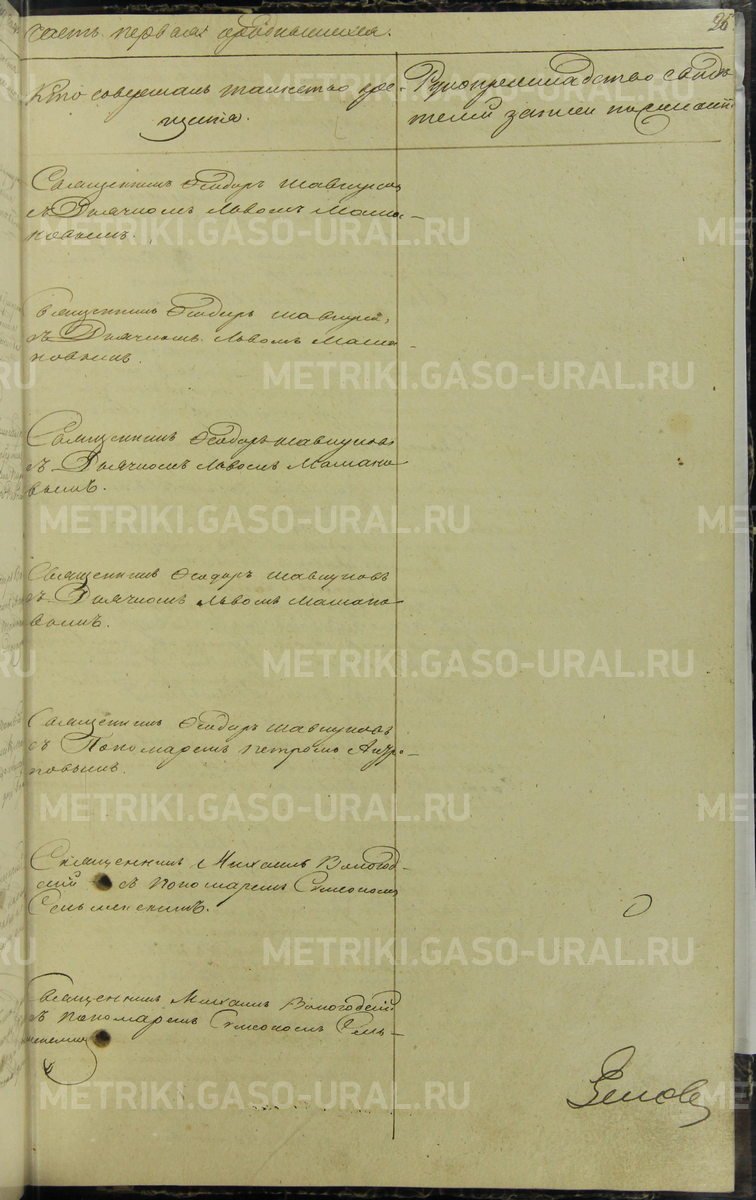 часть первая о родившихся.
26
Кто совершалъ таинство кре-
щенія.
Рукоприкладство свидѣ-
телей записи по желанію
Священникъ Ѳеодоръ Шавкуновъ
съ Дьячкомъ Львомъ Мама-
новымъ.
Священникъ Ѳеодоръ
съ Дьячкомъ Львомъ Мама-
новымъ.
Священникъ Ѳеодоръ Шавкуновъ
съ Дьячкомъ Львомъ Мамано-
вымъ.
Священникъ Ѳеодоръ Шавкуновъ
съ Дьячкомъ Львомъ Мамано-
вымъ.
Священникъ Ѳеодоръ Шавкуновъ
съ Пономаремъ Петромъ
повымъ.
Священникъ Михаилъ Вологод-
скій съ Пономаремъ Симеономъ
Сельменскимъ.
Священникъ Михаилъ Вологодскій
съ Пономаремъ Симеономъ Сель-
METRIKI.GASO-URAL.RU